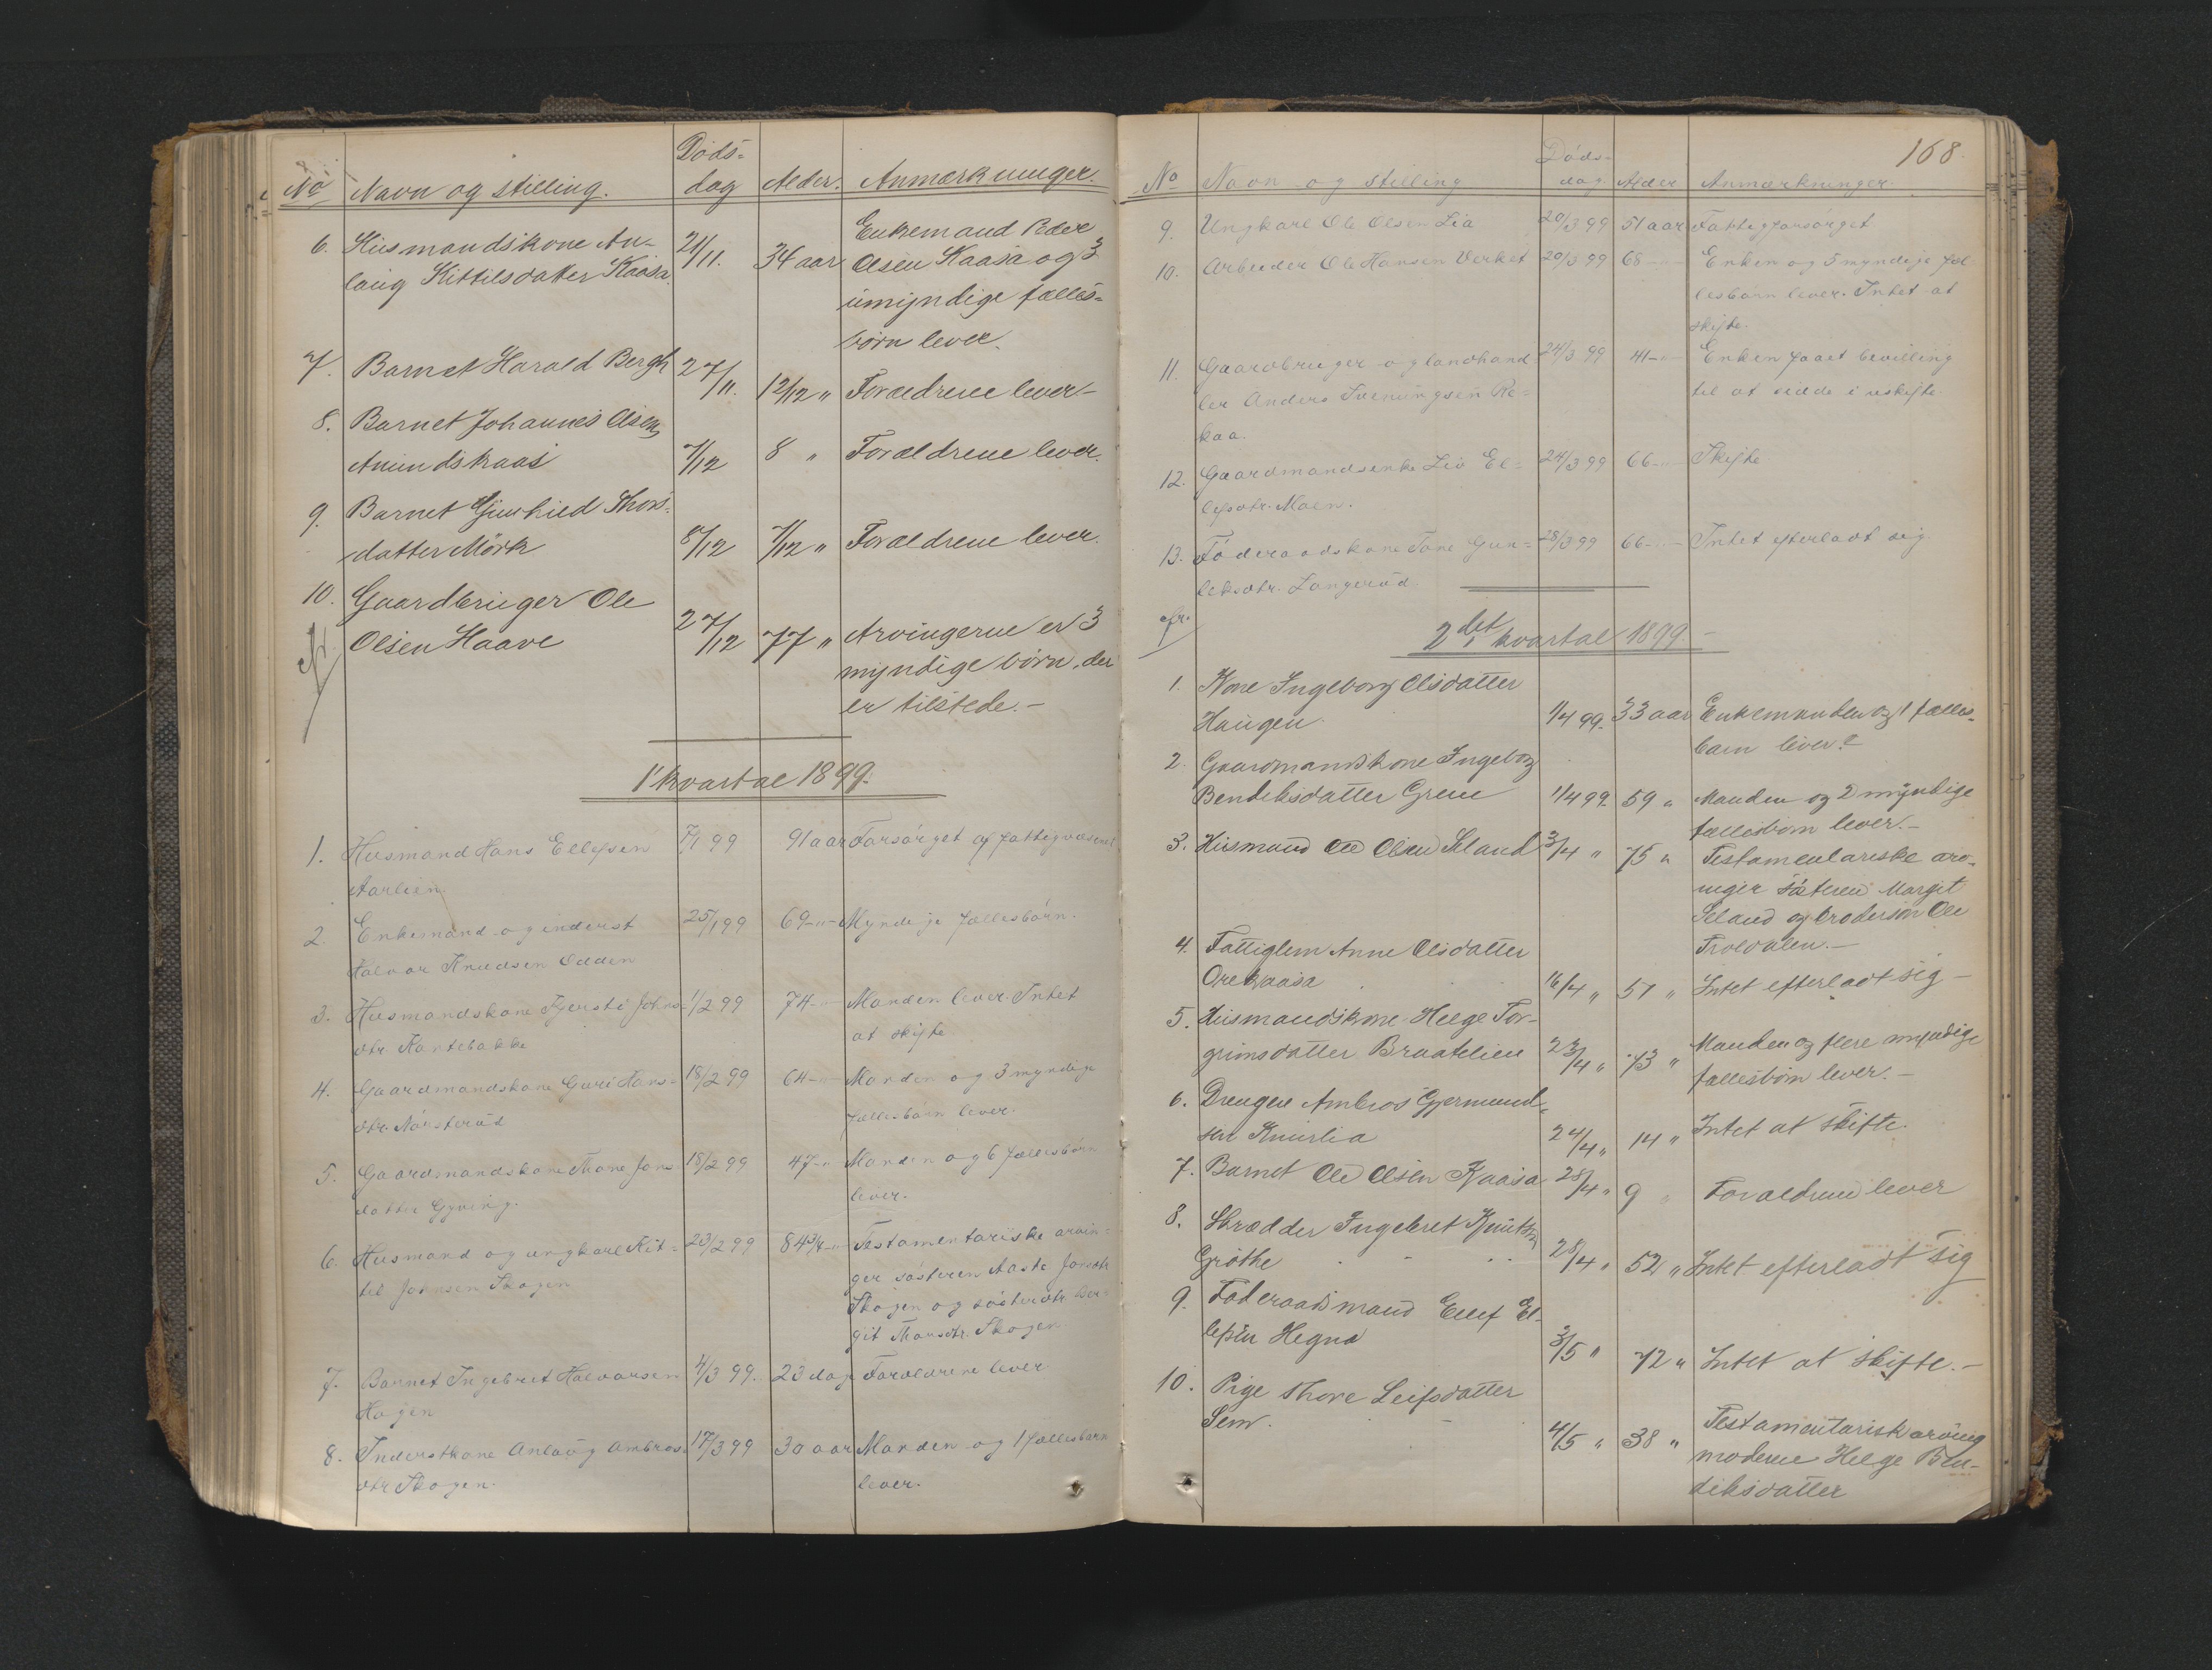 Døds-
No Navn og stilling. dag Alder. Anmærkninger.
6. Husmandskone An- 21/11. 34 aar Enkemand Peder
laug Kittilsdatter Kaasa. Olsen Kaasa og 3
umyndige fælles-
børn lever.
7. Barnet Harald Bergh 27/11. 12/12 " Forældrene lever-
8. Barnet Johannes Olsen
Amundskaas 7/12 8 " Forældrene lever.
9. Barnet Gunhild Thors-
datter Mörk 8/12 7/12 " Forældrene lever.
10. Gaardbruger Ole
Olsen Haave 27/12 77 " Arvingerne er 3
myndige børn, der
er tilstede.-
1' kvartal 1899.
1. Husmand Hans Ellefsen 7/1 99 91 aar Forsörget af fattigvæsenet
Aarlien.
2. Enkemand og inderst 25/1 99 69 -"- Myndige fællesbörn.
Halvor Knudsen Odden
3. Husmandskone Kjersti Johns- 1/2 99 74 -"- Manden lever. Intet
dtr. Kantebakke at skifte
4. Gaardmandskone Guri Hans- 18/2 99 64 -"- Manden og 3 myndige
dtr. Nörsteröd fællesbörn lever.
5. Gaardmandskone Thone Jons- 18/2 99 47 -"- Manden og 6 fællesbörn
datter Gyving. lever.
6. Husmand og ungkarl Kit- 23/2 99 84 3/4 -"- Testamentariske arvin-
til Johnsen Skogen ger søsteren Aaste Jonsdtr
Skogen og søsterdtr. Ber-
git Skogen
7. Barnet Ingebret Halvorsen 4/3 99. 23 dage Forældrene lever
Hagen
8. Inderstkone Anlaug Ambros- 17/3 99 30 aar Manden og 1 fællesbarn
dtr Skogen. lever.
168.
Døds-
No Navn og stilling dag Alder Anmærkninger.
9. Ungkarl Ole Olsen Lia 20/3 99 51 aar Fattigforsörget
10. Arbeider Ole Hansen Verket 20/3 99 68 -"- Enken og 5 myndige fæl-
lesbörn lever. Intet at
skifte.
11. Gaardbruger og landhand- 24/3 99 41 -"- Enken faaet bevilling
ler Anders Svenungsen Re- til at sidde i uskifte
kaa.
12. Gaardmandsenke Liv El- 24/3 99 66 -"- Skifte
lefsdtr. Moen.
13. Föderaadskone Tone Gun- 28/3 99 66 -"- Intet efterladt sig.
leksdtr. Langeröd.
2det kvartal 1899 -
1. Kone Ingeborg Olsdatter
Haugen. 1/4 99. 33 aar Enkemanden og 1 fælles-
barn lever.
2. Gaardmandskone Ingeborg
Bendiksdatter Grene 1/4 99. 59 " Manden og 2 myndige
fællesbørn lever.-
3. Husmand Ole Olsen Seland 3/4 " 75 " Testamentariske arv-
inger søsteren Margit
Seland og brodersøn Ole
Troldalen.-
4. Fattiglem Anne Olsdatter
Orekaasa 16/4 " 51 " Intet efterladt sig -
5. Husmandskone Helge Tor-
grimsdatter Braatelien 23/4 " 73 " Manden og flere myndige
fællesbørn lever.-
6. Drengen Ambros Gjermund-
sen Knurlia 24/4 " 14 " Intet at skifte.
7. Barnet Ole Olsen Kaasa 28/4 " 9 " Forældrene lever
8. Skrædder Ingebret Knutsen
Grothe 28/4 " 52 " Intet efterladt sig
9. Føderaadsmand Ellef El-
lefsen Hegna 3/5 " 72 " Intet at skifte.-
10. Pige Thore Leifsdatter
Sem. 4/5 " 38 " Testamentarisk arving
moderen Helge Ben-
diksdatter